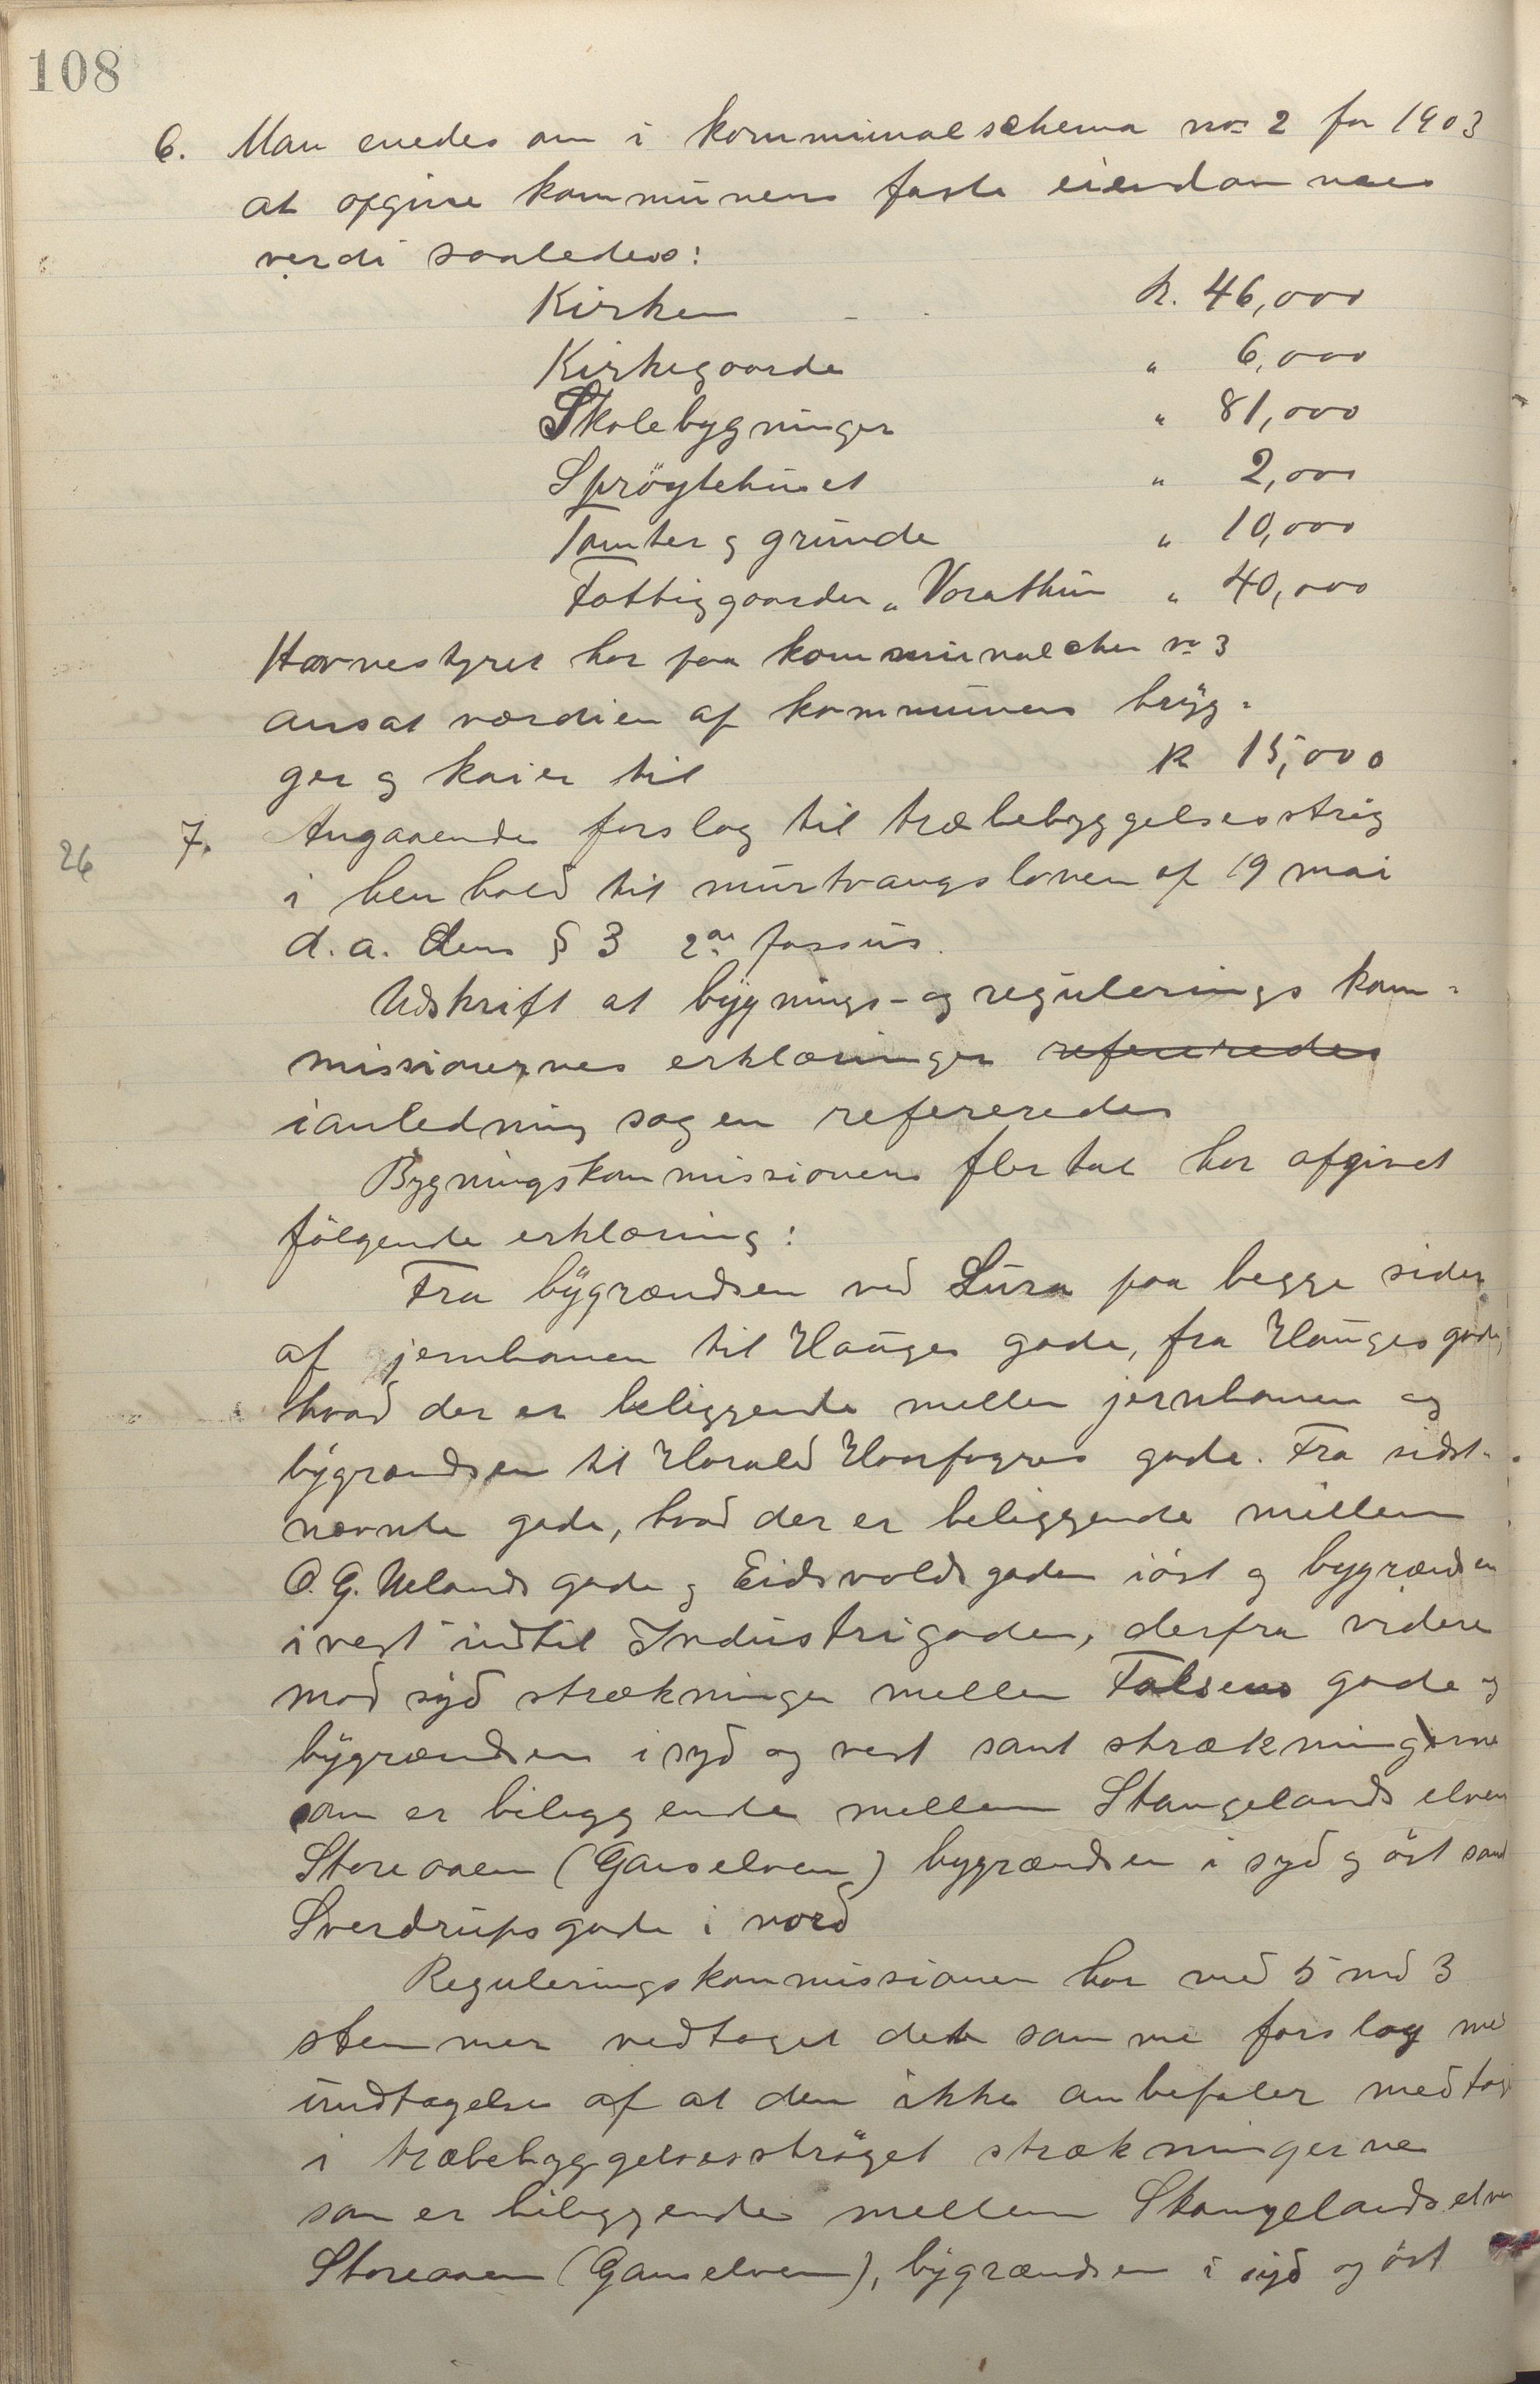 108
6. Man enedes om i kommunalschema no 2 for 1903
at opgive kommunens faste eiendommes
verdi saaledes:
Kirken - . k. 46,000
Kirkegaarde " 6,000
Skolebygninger " 81,000
Spröytehuset " 2,000
Tomter og grunde " 10,000
Fattiggaarden „Vorathun " 40,000
Havnestyret har paa kommunalschm no 3
ansat værdien af kommunens bryg=
ger og kaier til K 15,000
26 7. Angaaende forslag til træbebyggelsesströg
i henhold til murtvangsloven af 19 mai
d.a. dens § 3 2det passus.
Udskrift at bygnings- og regulerings kom=
missionernes erklæringer refereredes
ianledning sagen refereredes
Bygningskommissionens flertal har afgivet
følgende erklæring:
Fra bygrændsen ved Lura paa begge sider
af jernbanen til Hauges gade, fra Hauges gade
hvad der er beliggende mellem jernbanen og
bygrændsen til Harald Haarfagres gade. Fra sidst-
nævnte gade, hvad der er beliggende mellem
O. G. Uelands gade og Eidsvolds gaden iöst og bygrændsen
ivest indtil Industrigaden, derfra videre
mod syd strækningen mellem Falsens gade og
bygrændsen i syd og vest samt strækningerne
som er beliggende mellem Stangelands elven
Storeaaen (Ganselven) bygrændsen i syd og öst samt
Sverdrups gade i nord
Reguleringskommissionen har med 5 mod 3
stemmer vedtaget dette samme forslag med
undtagelse af at den ikke anbefaler medtag
i træbebyggelsesströget strækningerne
som er beliggende mellem Stangelandselven
Storeaaen (Ganselven), bygrændsen i syd og öst